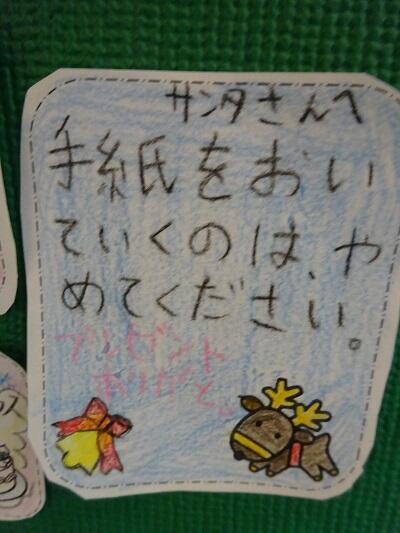 サンタさんへ
手紙をおい
ていくのは、や
めてください。
プレゼント
ありがと。